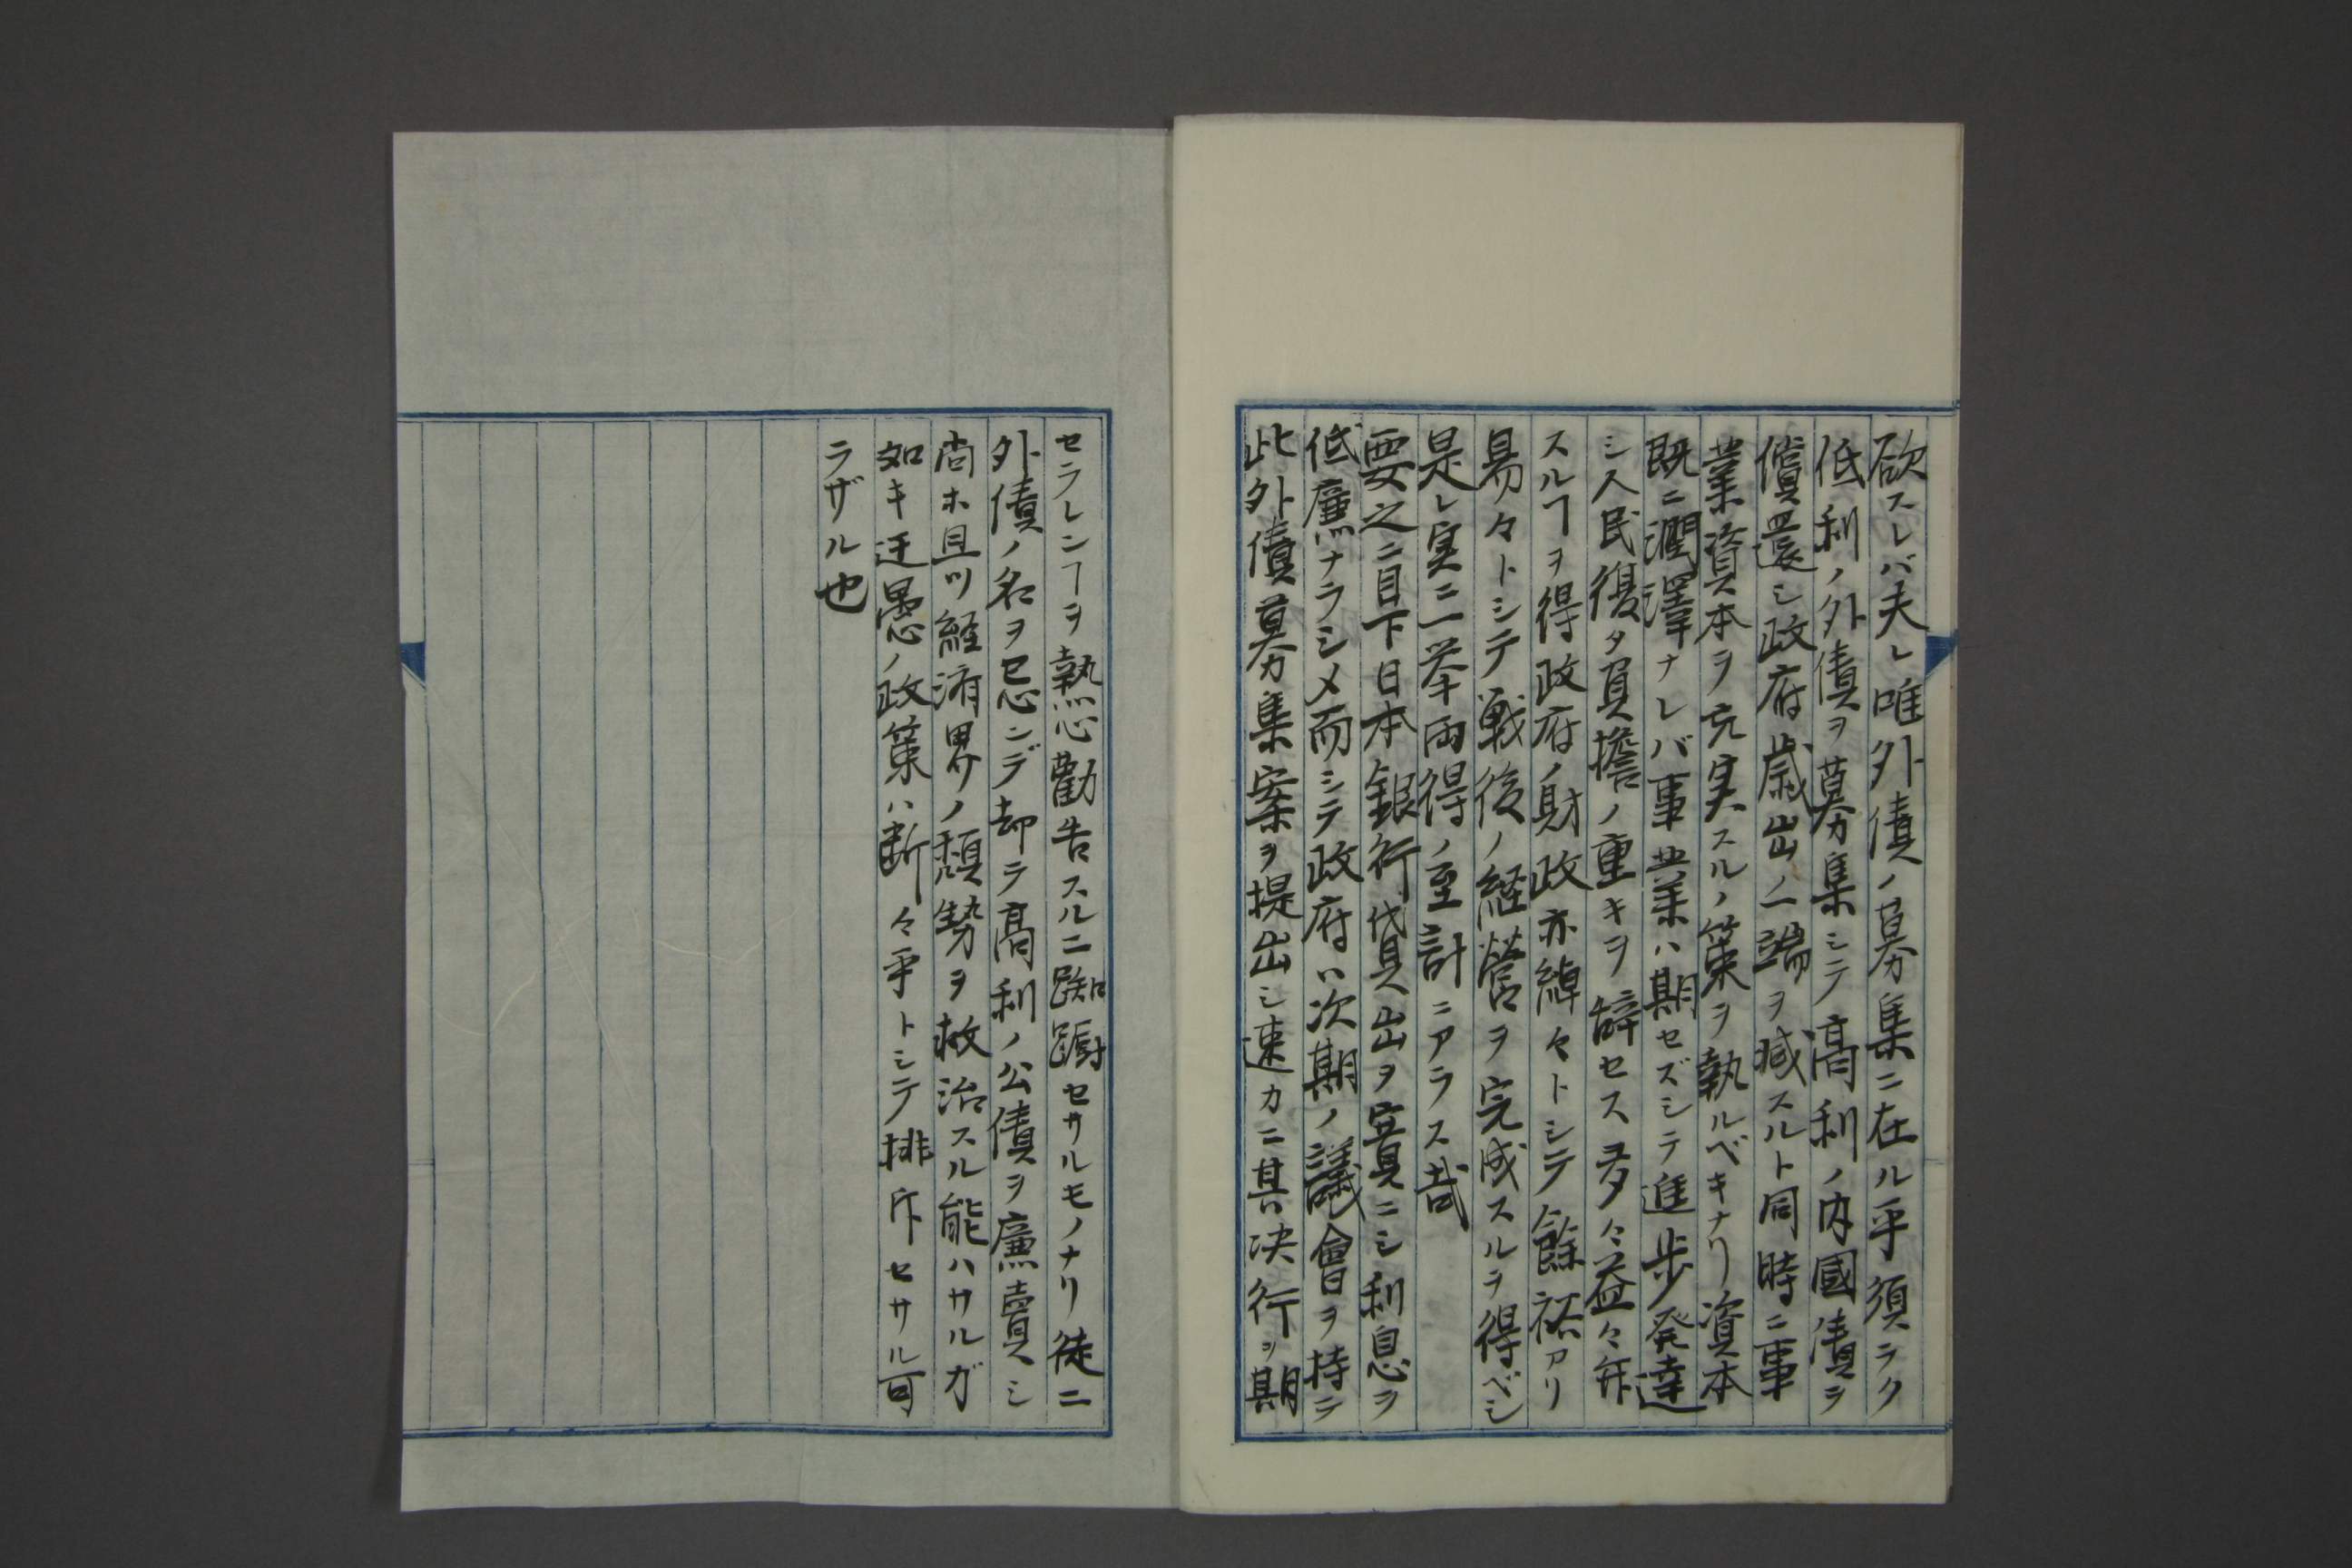 欲スレバ夫レ唯外債ノ募集ニ在ル乎須ラク
低利ノ外債ヲ募集シテ高利ノ内國債ヲ
償還シ政府歳出ノ一端ヲ減スルト同時ニ事
業資本ヲ充実スルノ策ヲ執ルベキナリ資本
既ニ潤澤ナレバ事業ハ期セズシテ進歩発達
シ人民復タ負擔ノ重キヲ辞セス多々益々弁
スルヿヲ得政府ノ財政亦綽々トシテ餘裕アリ
易々トシテ戦後ノ経営ヲ完成スルヲ得ベシ
是レ実ニ一挙両得ノ至計ニアラス哉
要之ニ目下日本銀行貸出ヲ寛ニシ利息ヲ
低廉ナラシメ而シテ政府ハ次期ノ議會ヲ待テ
此外債募集案ヲ提出シ速カニ其決行ヲ期
セラレンヿヲ熱心勸告スルニ踟躕セサルモノナリ徒ニ
外債ノ名ヲ忌ンデ却テ高利ノ公債ヲ廉賣シ
尚ホ且ツ経済界ノ頽勢ヲ救治スル能ハサルガ
如キ迂愚ノ政策ハ断々乎トシテ排斥セサル可
ラザル也